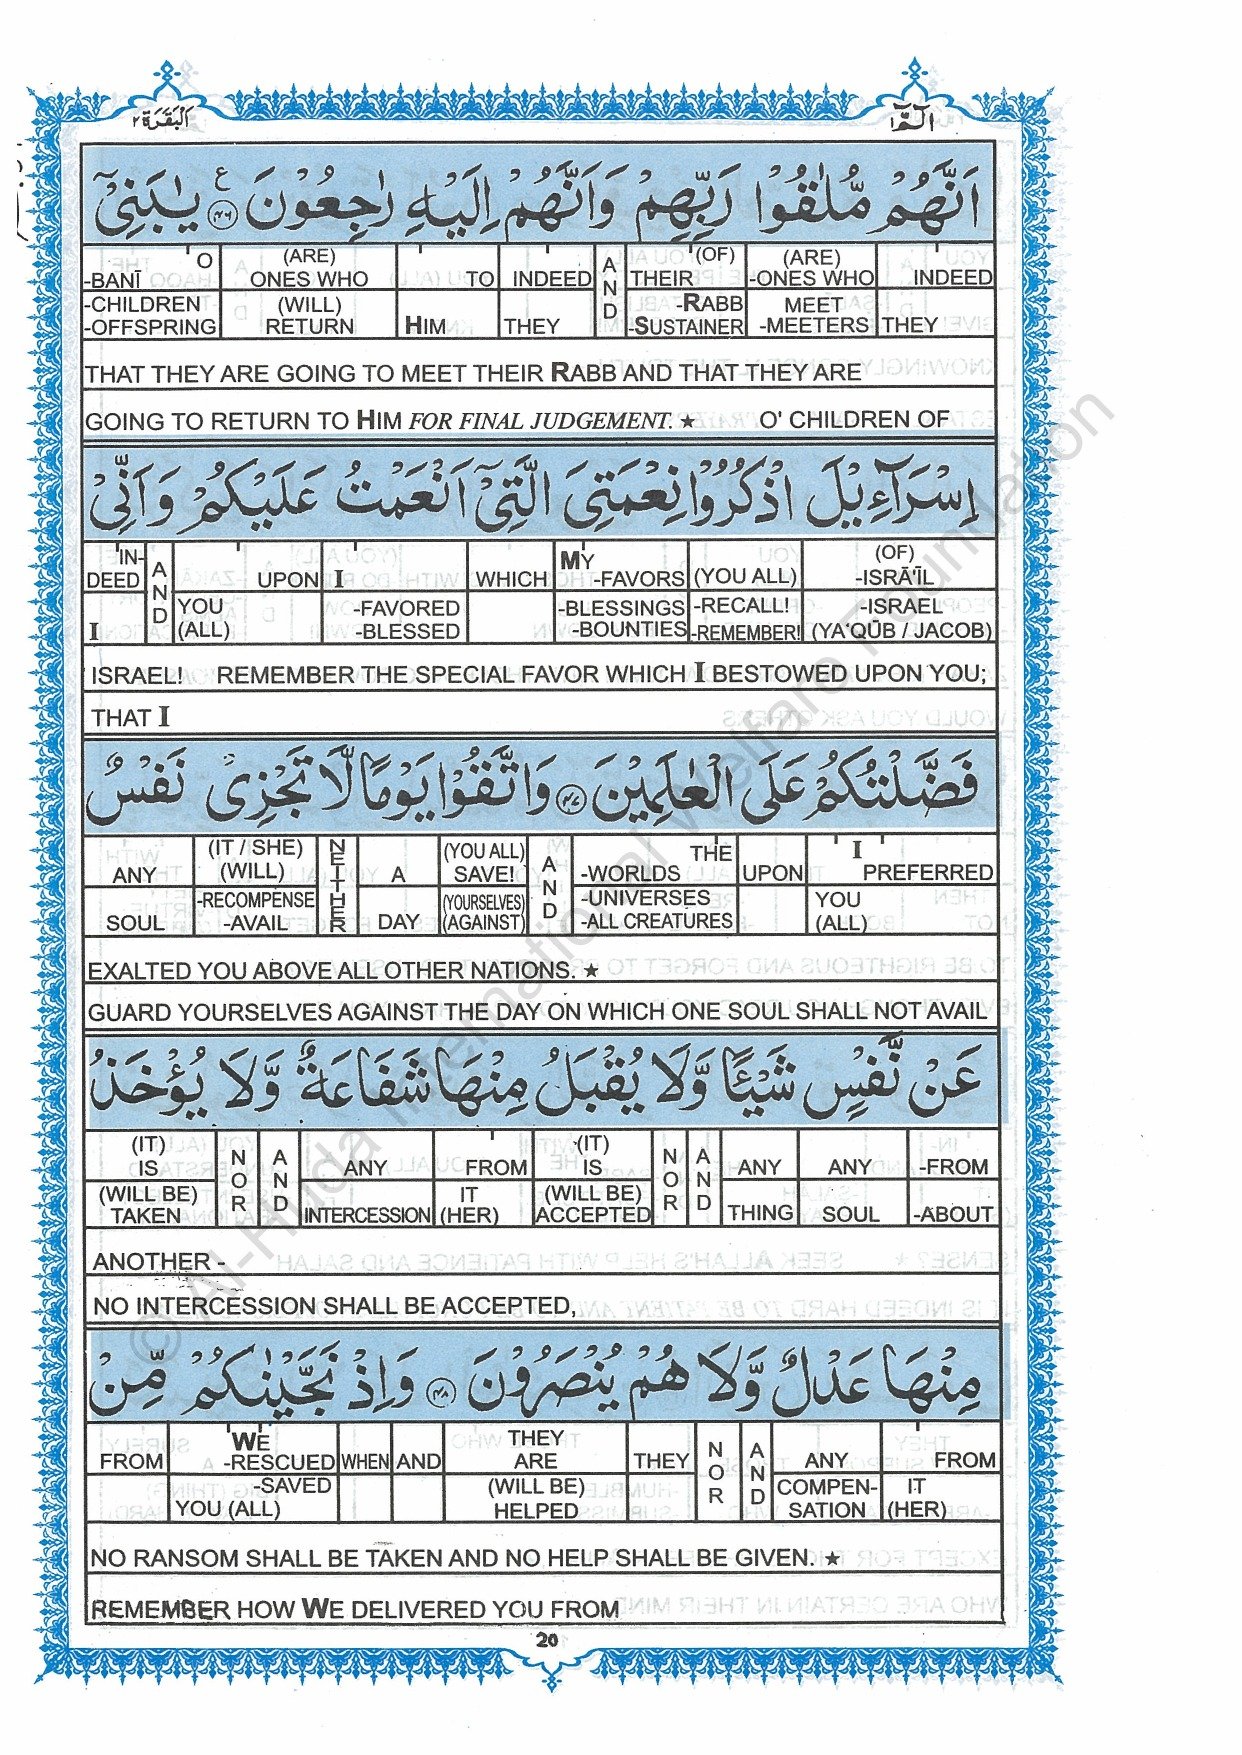 الٓمّٓ ١
اَلْبَقَرَة ٢
اَنَّهُمْ مُّلٰقُوْا رَبِّهِمْ وَاَنَّهُمْ اِلَيْهِ رٰجِعُوْنَ ﴿٤٦﴾ ع يٰبَنِىْٓ
O (ARE) (OF) (ARE)
-BANĪ ONES WHO TO INDEED AND THEIR -ONES WHO INDEED
-CHILDREN (WILL) -RABB MEET
-OFFSPRING RETURN HIM THEY -SUSTAINER -MEETERS THEY
THAT THEY ARE GOING TO MEET THEIR RABB AND THAT THEY ARE
GOING TO RETURN TO HIM FOR FINAL JUDGEMENT. ★ O' CHILDREN OF
اِسْرَآءِيْلَ اذْكُرُوْا نِعْمَتِىَ الَّتِىْٓ اَنْعَمْتُ عَلَيْكُمْ وَاَنِّىْ
IN- MY (OF)
DEED AND UPON I WHICH -FAVORS (YOU ALL) -ISRĀ'ĪL
YOU -FAVORED -BLESSINGS -RECALL! -ISRAEL
I (ALL) -BLESSED -BOUNTIES -REMEMBER! (YA'QŪB / JACOB)
ISRAEL! REMEMBER THE SPECIAL FAVOR WHICH I BESTOWED UPON YOU;
THAT I
فَضَّلْتُكُمْ عَلَى الْعٰلَمِيْنَ ﴿٤٧﴾ وَاتَّقُوْا يَوْمًا لَّا تَجْزِىْ نَفْسٌ
(IT / SHE) NEITHER (YOU ALL) AND THE I
ANY (WILL) A SAVE! -WORLDS UPON PREFERRED
-RECOMPENSE (YOURSELVES) -UNIVERSES YOU
SOUL -AVAIL DAY (AGAINST) -ALL CREATURES (ALL)
EXALTED YOU ABOVE ALL OTHER NATIONS. ★
GUARD YOURSELVES AGAINST THE DAY ON WHICH ONE SOUL SHALL NOT AVAIL
عَنْ نَّفْسٍ شَيْئًا وَّلَا يُقْبَلُ مِنْهَا شَفَاعَةٌ وَّلَا يُؤْخَذُ
(IT) (IT)
IS NOR AND ANY FROM IS NOR AND ANY ANY -FROM
(WILL BE) IT (WILL BE)
TAKEN INTERCESSION (HER) ACCEPTED THING SOUL -ABOUT
ANOTHER -
NO INTERCESSION SHALL BE ACCEPTED,
مِنْهَا عَدْلٌ وَّلَا هُمْ يُنْصَرُوْنَ ﴿٤٨﴾ وَاِذْ نَجَّيْنٰكُمْ مِّنْ
WE THEY
FROM -RESCUED WHEN AND ARE THEY NOR AND ANY FROM
-SAVED (WILL BE) COMPEN- IT
YOU (ALL) HELPED SATION (HER)
NO RANSOM SHALL BE TAKEN AND NO HELP SHALL BE GIVEN. ★
REMEMBER HOW WE DELIVERED YOU FROM
20
© Al-Huda International Welfare Foundation